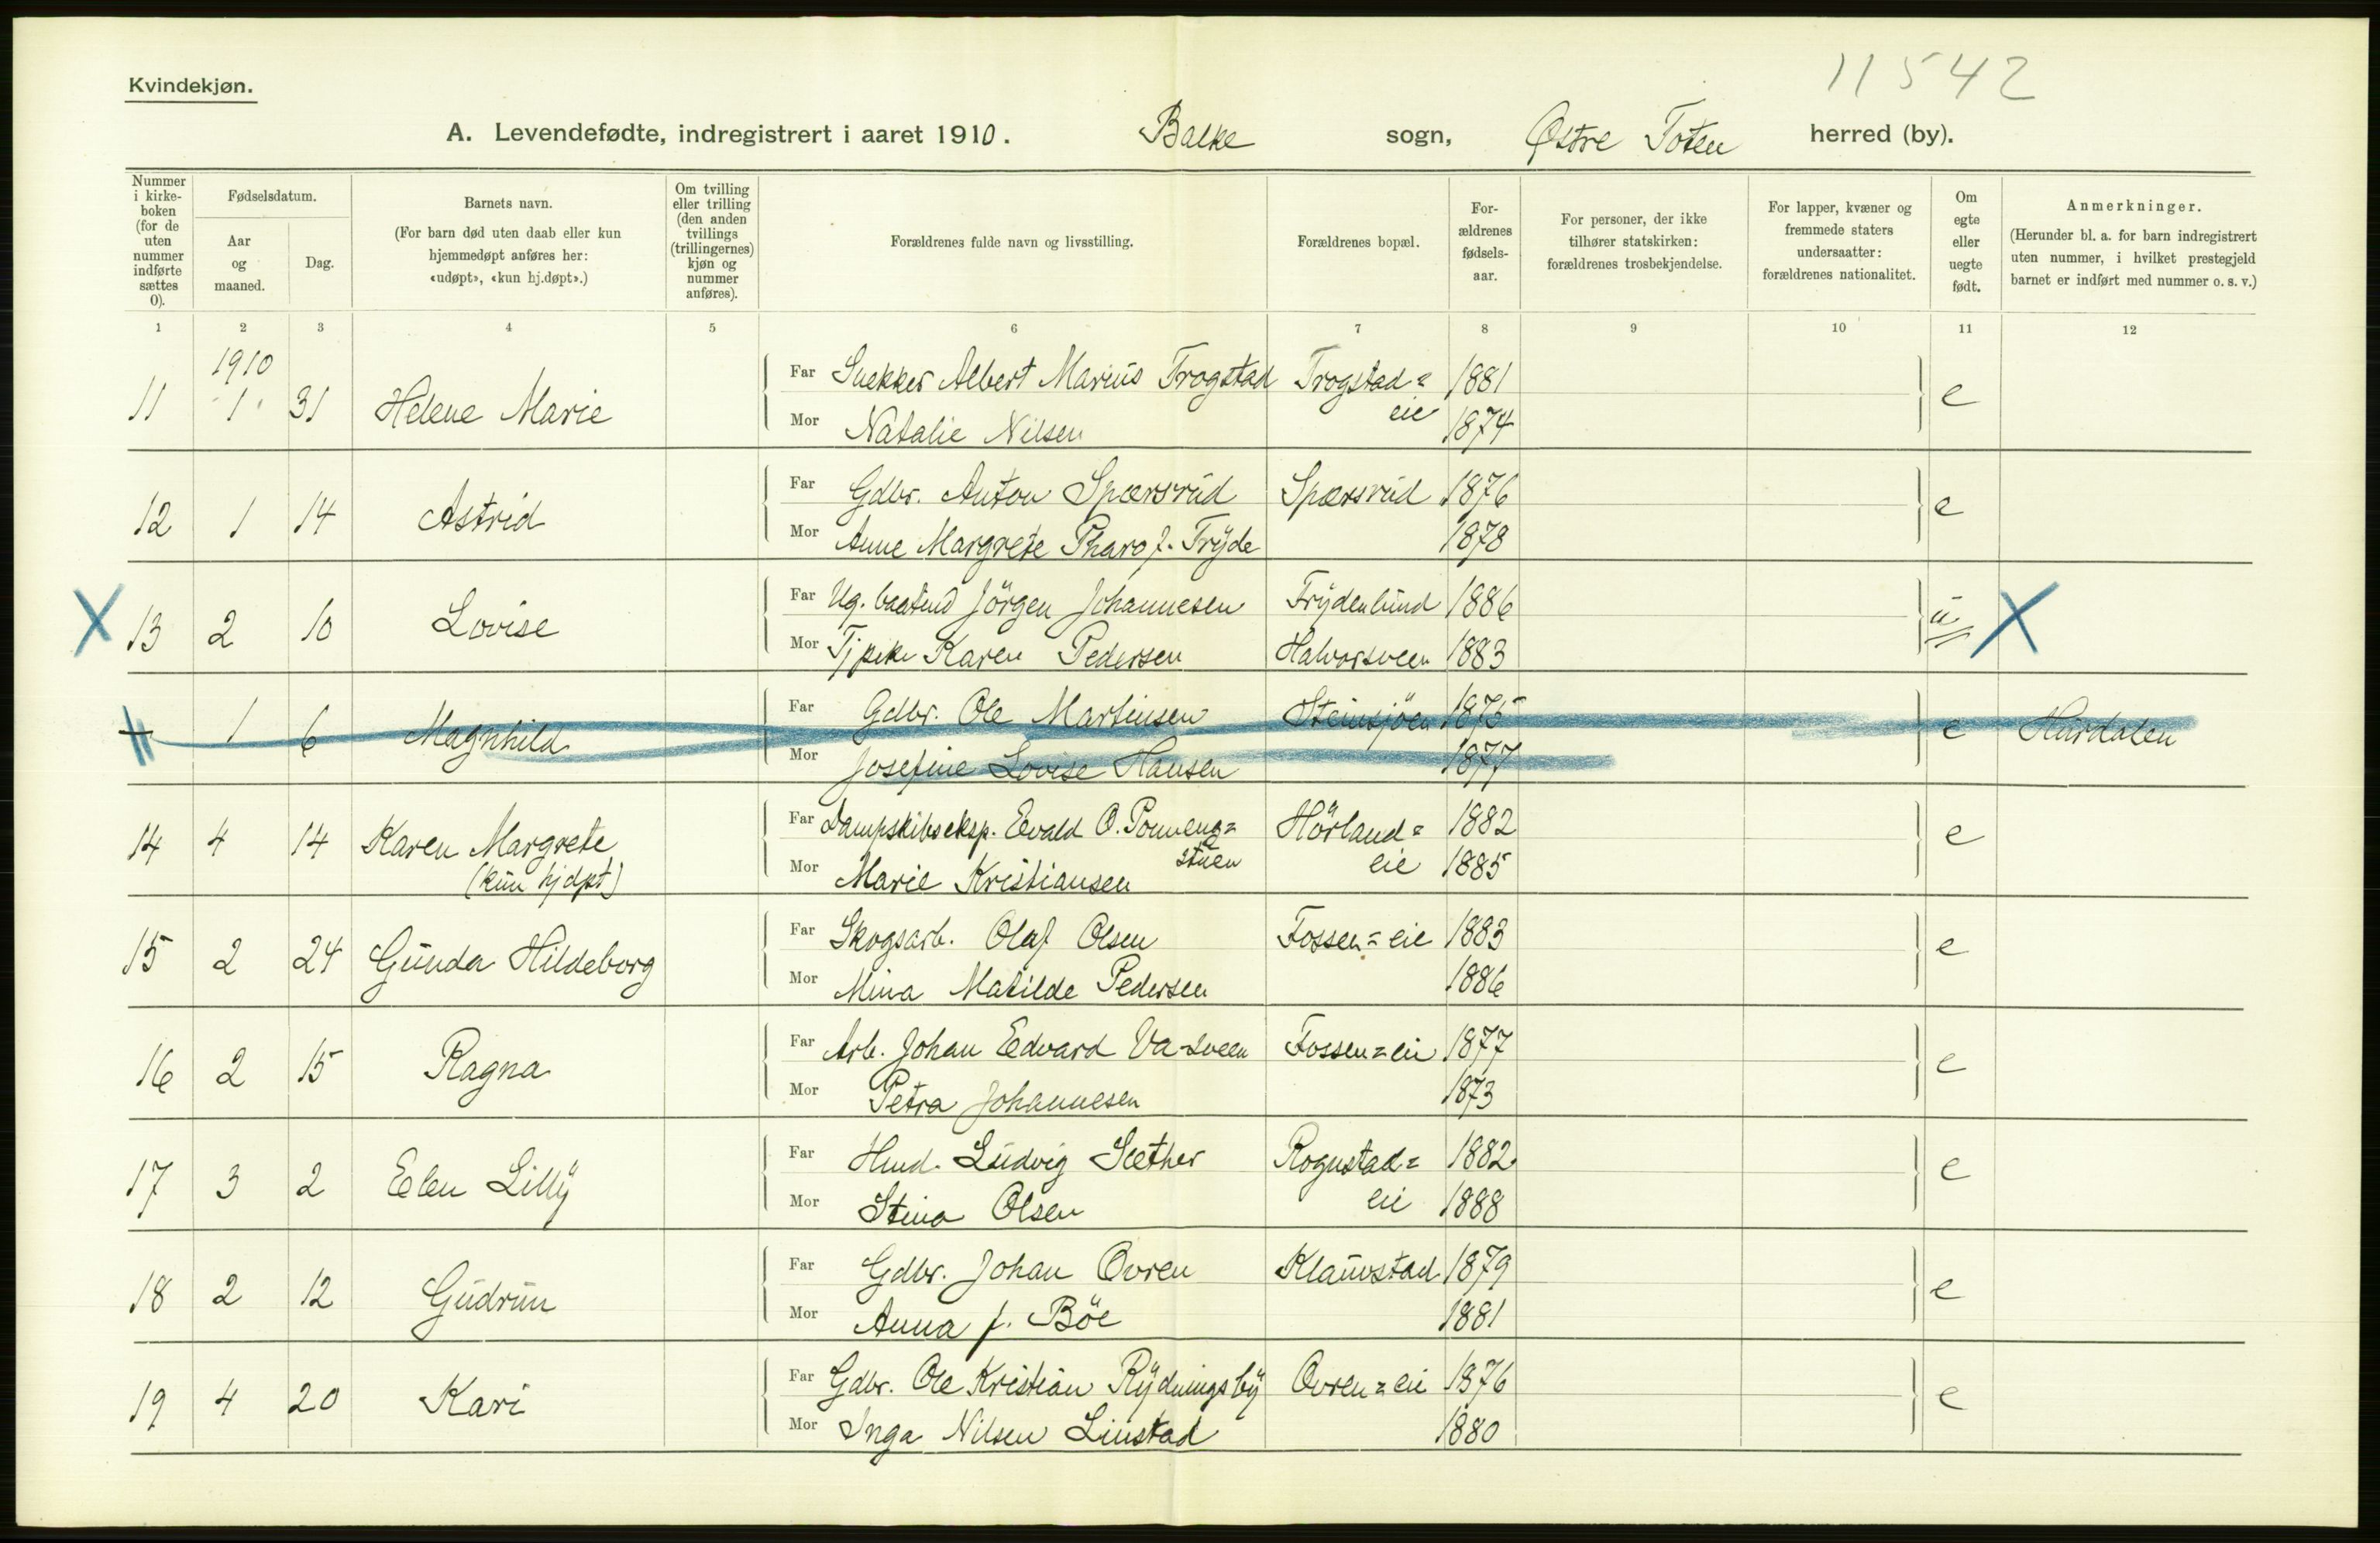 11542
Kvindekjøn.
A. Levendefødte, indregistrert i aaret 1910. Balke sogn, Østre Toten herred (by).
Nummer i kirke-boken (for de uten nummer indførte sættes 0).
Fødselsdatum.
Aar og maaned.
Dag.
Barnets navn.
(For barn død uten daab eller kun hjemmedøpt anføres her: «udøpt», «kun hj.døpt».)
Om tvilling eller trilling (den anden tvillings (trillingernes) kjøn og nummer anføres).
Forældrenes fulde navn og livsstilling.
Forældrenes bopæl.
For-ældrenes fødsels-aar.
For personer, der ikke tilhører statskirken: forældrenes trosbekjendelse.
For lapper, kvæner og fremmede staters undersaatter: forældrenes nationalitet.
Om egte eller uegte født.
Anmerkninger.
(Herunder bl. a. for barn indregistrert uten nummer, i hvilket prestegjeld barnet er indført med nummer o. s. v.)
1 2 3 4 5 6 7 8 9 10 11 12
1910
Far Snekker Albert Marius Trogstad Trogstad= 1881
11 1 31 Helene Marie e
Mor Natalie Nilsen eie 1874
Far Gdbr. Anton Spærsrud Spærsrud 1876
12 1 14 Astrid e
Mor Anne Margrete Tharo f. Fryde 1878
Far Ug. baatmd Jörgen Johannesen Frydenlund 1886
X 13 2 10 Lovise u X
Mor Tjpike Karen Pedersen Halvorsveen 1883
Far Gdbr. Ole Martinsen Steinsjöen 1875
1 6 Magnhild e Hurdalen
Mor Josefine Lovise Hansen 1877
Far Dampskibseksp. Evald O. Ponneng= Hörland= 1882
14 4 14 Karen Margrete e
stuen
Mor Marie Kristiansen eie 1885
(kun hjdpt)
Far Skogsarb. Olaf Olsen Fossen=eie 1883
15 2 24 Gunda Hildeborg e
Mor Mina Matilde Pedersen 1886
Far Arb. Johan Edvard Va-sveen Fossen=eie 1877
16 2 15 Ragna e
Mor Petra Johannesen 1873
Far Hmd. Ludvig Sæther Rognstad= 1882
17 3 2 Elen Lilly e
Mor Stina Olsen eie 1888
Far Gdbr. Johan Ovren Klauvstad 1879
18 2 12 Gudrun e
Mor Anna f. Böe 1881
Far Gdbr. Ole Kristian Rydningsby Ovren=eie 1876
19 4 20 Kari e
Mor Inga Nilsen Linstad 1880